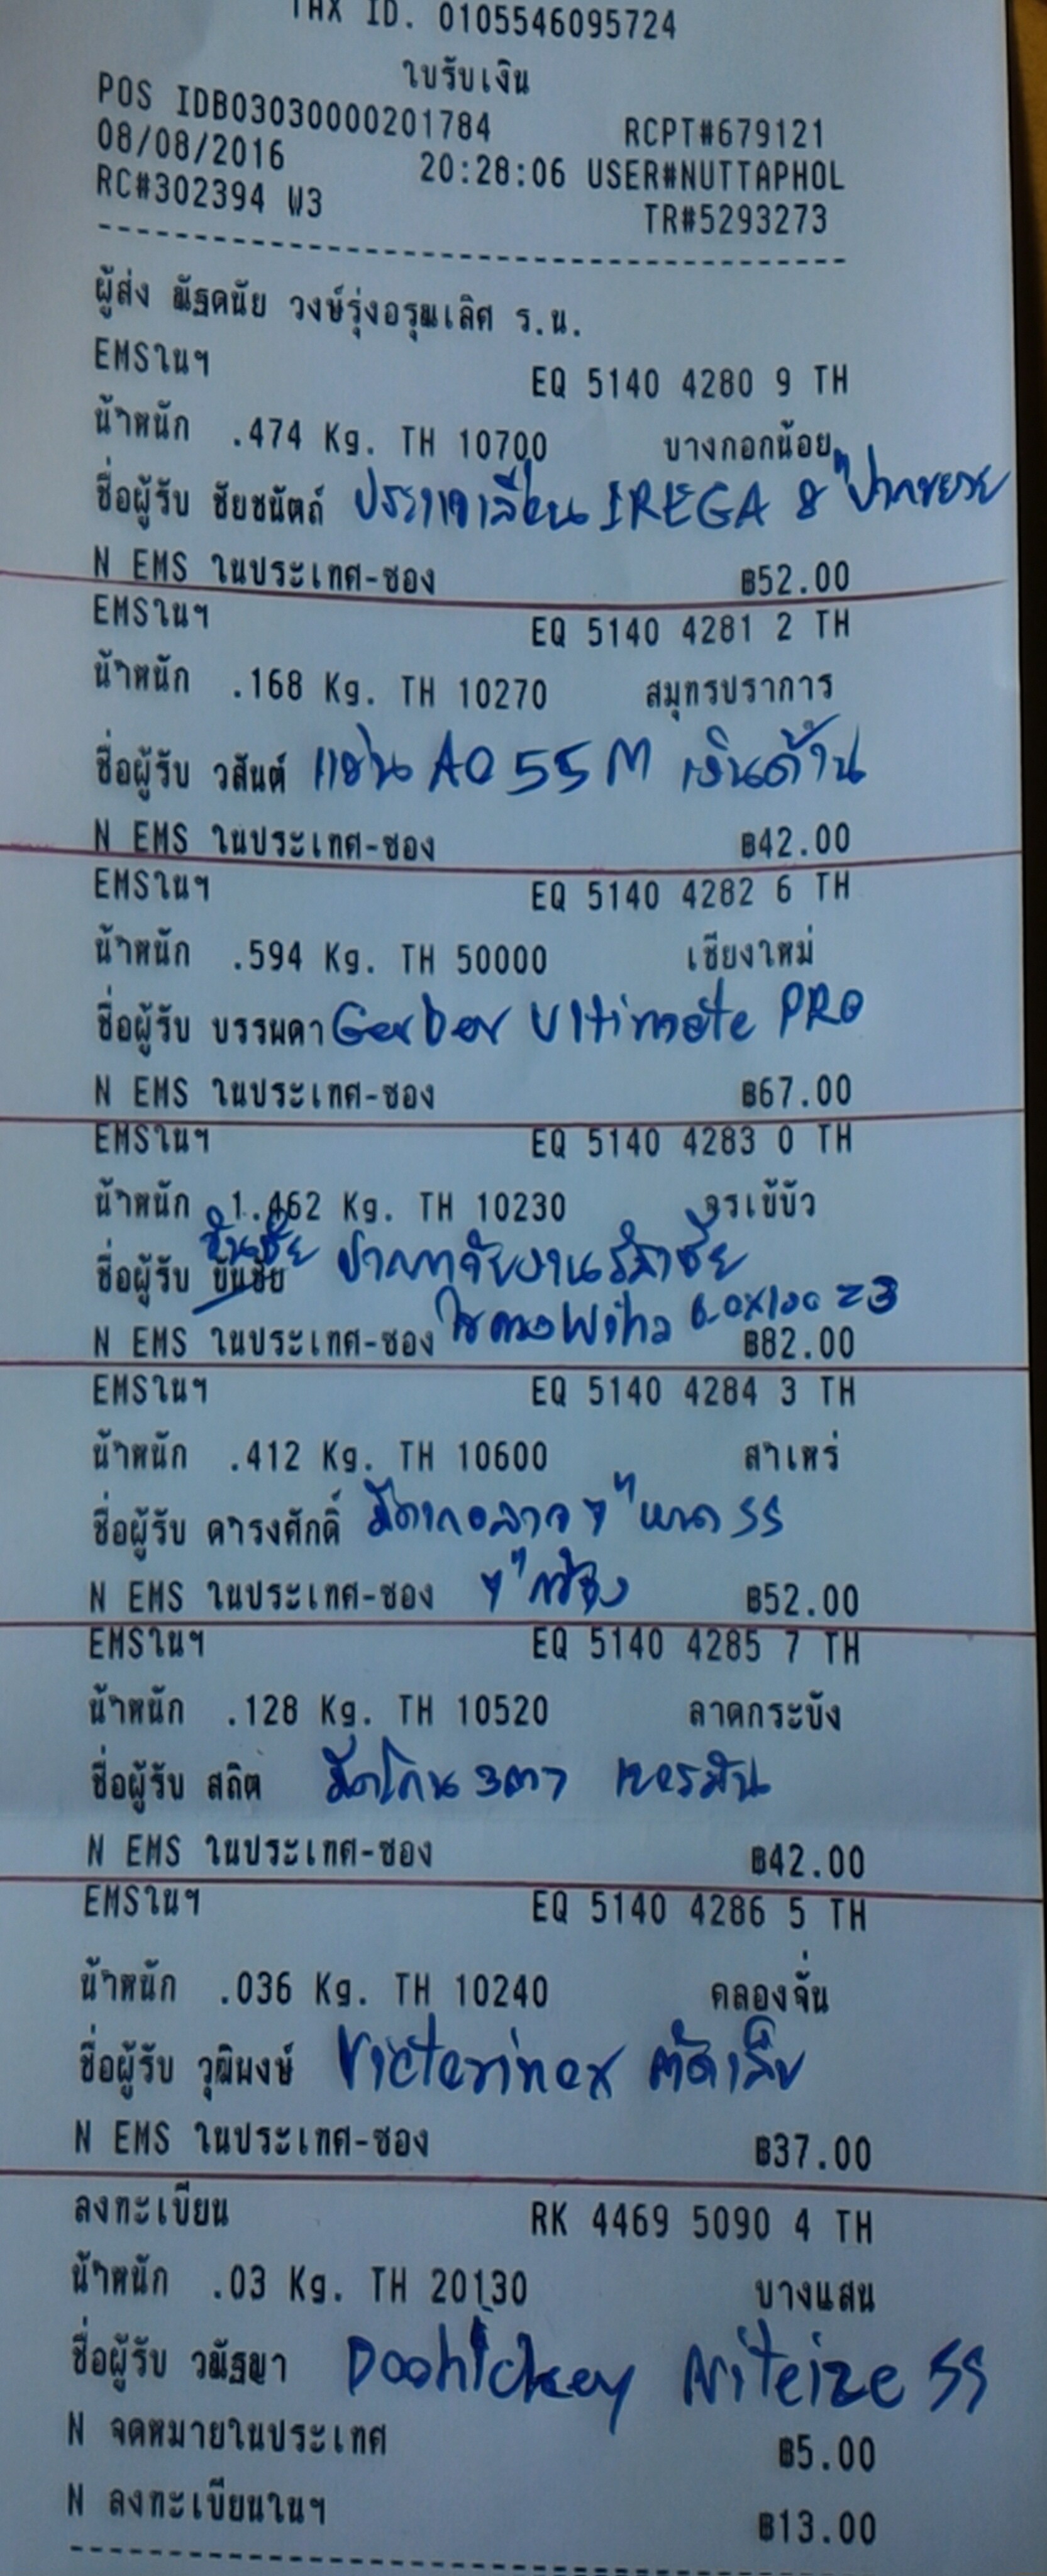 TAX ID. 0105546095724
ใบรับเงิน
POS IDB03030000201784 RCPT#679121
08/08/2016 20:28:06 USER#NUTTAPHOL
RC#302394 W3 TR#5293273
ผู้ส่ง ณัฐดนัย วงษ์รุ่งอรุณเลิศ ร.น.
EMSในฯ EQ 5140 4280 9 TH
น้ำหนัก .474 Kg. TH 10700 บางกอกน้อย
ชื่อผู้รับ ชัยชนัตถ์ ประแจเลื่อน IREGA 8" ปากขยาย
N EMS ในประเทศ-ซอง ฿52.00
EMSในฯ EQ 5140 4281 2 TH
น้ำหนัก .168 Kg. TH 10270 สมุทรปราการ
ชื่อผู้รับ วสันต์ แว่น AO 55 M เงินด้าน
N EMS ในประเทศ-ซอง ฿42.00
EMSในฯ EQ 5140 4282 6 TH
น้ำหนัก .594 Kg. TH 50000 เชียงใหม่
ชื่อผู้รับ บรรพดา Gerber Ultimate PRO
N EMS ในประเทศ-ซอง ฿67.00
EMSในฯ EQ 5140 4283 0 TH
น้ำหนัก 1.462 Kg. TH 10230 จรเข้บัว
ชื่อผู้รับ ขันชัย
ไขควง Wiha 6.0x100 = 3
N EMS ในประเทศ-ซอง ฿82.00
EMSในฯ EQ 5140 4284 3 TH
น้ำหนัก .412 Kg. TH 10600 สำเหร่
ชื่อผู้รับ ดำรงศักดิ์ SS
N EMS ในประเทศ-ซอง ฿52.00
EMSในฯ EQ 5140 4285 7 TH
น้ำหนัก .128 Kg. TH 10520 ลาดกระบัง
ชื่อผู้รับ สถิต
N EMS ในประเทศ-ซอง ฿42.00
EMSในฯ EQ 5140 4286 5 TH
น้ำหนัก .036 Kg. TH 10240 คลองจั่น
ชื่อผู้รับ วุฒิพงษ์ Victorinox ตัดเล็บ
N EMS ในประเทศ-ซอง ฿37.00
ลงทะเบียน RK 4469 5090 4 TH
น้ำหนัก .03 Kg. TH 20130 บางแสน
ชื่อผู้รับ วณัฐฌา Doohickey Niteize SS
N จดหมายในประเทศ ฿5.00
N ลงทะเบียนในฯ ฿13.00